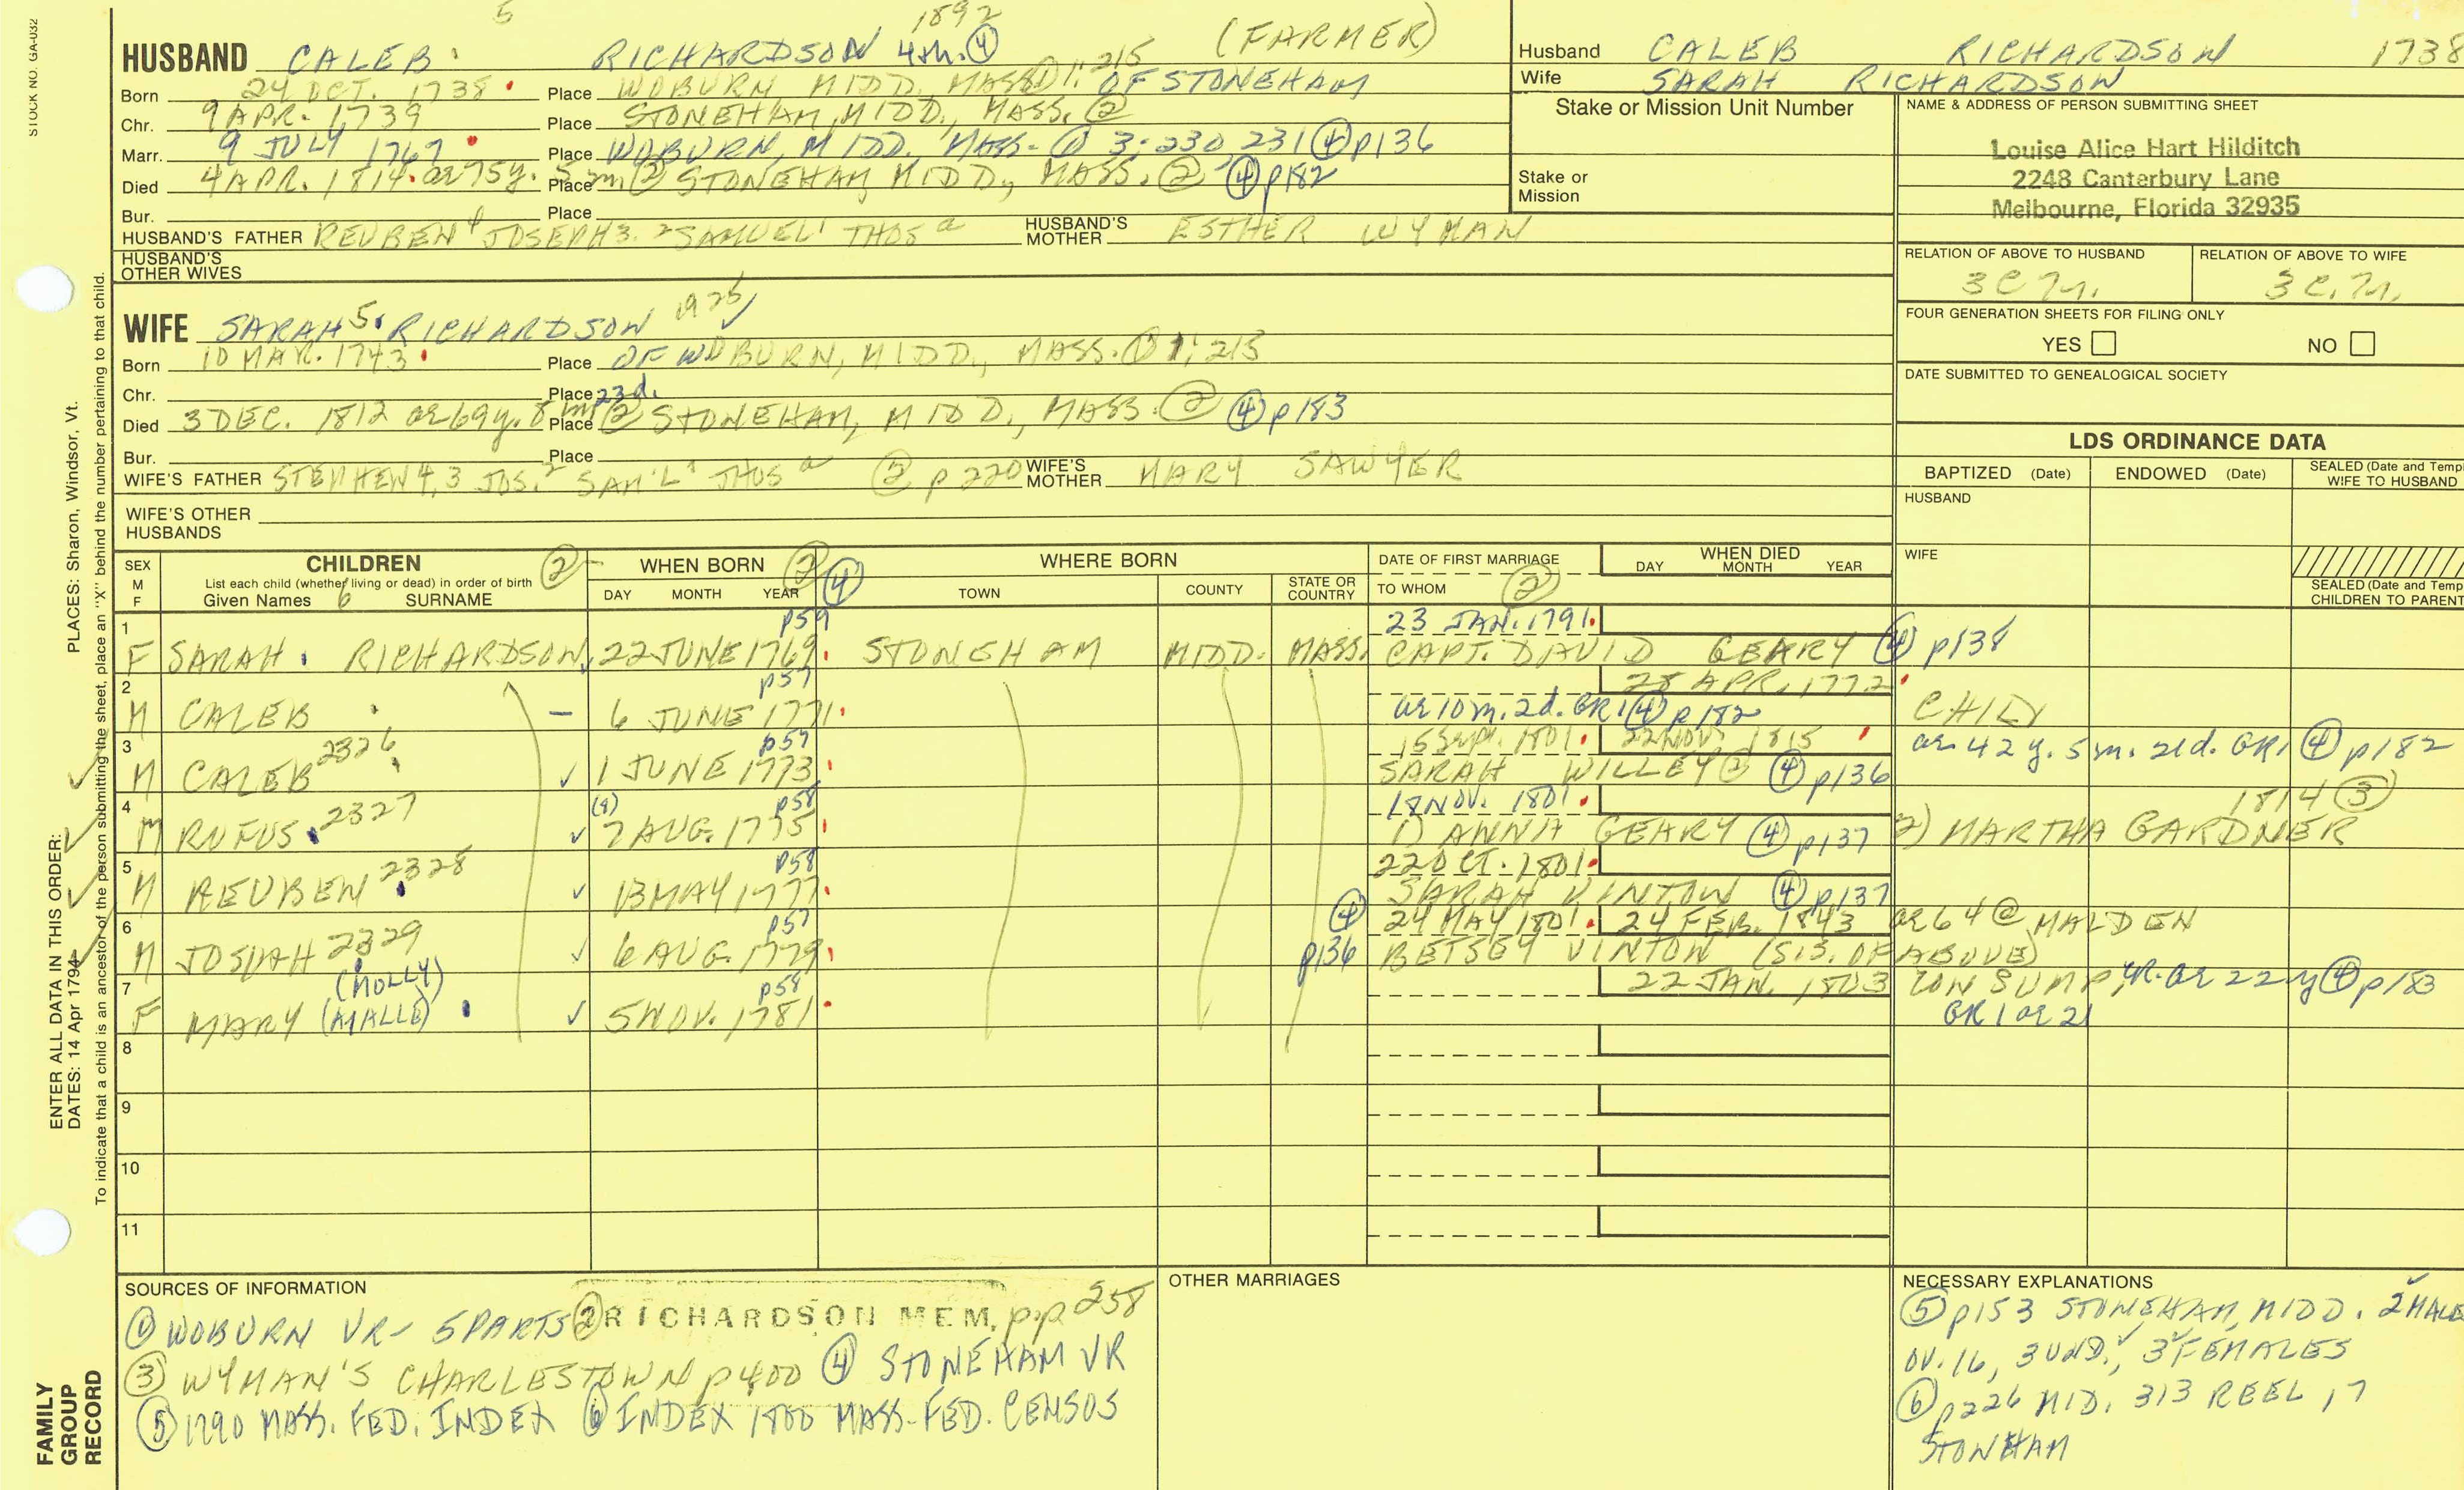 STOCK NO. GA-032
5 1892
HUSBAND CALEB RICHARDSON 4th. ④ (FARMER)
Born 24 OCT. 1738 Place WOBURN MIDD. MASS ① 1:215 OF STONEHAM
Chr. 9 APR. 1739 Place STONEHAM, MIDD., MASS. ②
Marr. 9 JULY 1767 Place WOBURN, MIDD. MASS- ① 3:230, 231 ④ p136
Died 4 APR. 1814. ae 75y. 5m ② Place STONEHAM, MIDD., MASS. ② ④ p182
Bur. Place
HUSBAND'S FATHER REUBEN 4 JOSEPH 3. 2 SAMUEL 1 THOS a HUSBAND'S MOTHER ESTHER WYMAN
HUSBAND'S OTHER WIVES
WIFE SARAH 5. RICHARDSON 1925
Born 10 MAR. 1743 Place OF WOBURN, MIDD., MASS. ① 1:213
Chr. Place 23d.
Died 3 DEC. 1812 ae 69y. 8 m ② Place STONEHAM, MIDD., MASS. ② ④ p183
Bur. Place
WIFE'S FATHER STEPHEN 4, 3 JOS. 2 SAM'L 1 THOS a ② p 220 WIFE'S MOTHER MARY SAWYER
WIFE'S OTHER HUSBANDS
Husband CALEB RICHARDSON 1738
Wife SARAH RICHARDSON
Stake or Mission Unit Number
Stake or Mission
NAME & ADDRESS OF PERSON SUBMITTING SHEET
Louise Alice Hart Hilditch
2248 Canterbury Lane
Melbourne, Florida 32935
RELATION OF ABOVE TO HUSBAND RELATION OF ABOVE TO WIFE
FOUR GENERATION SHEETS FOR FILING ONLY
YES NO
DATE SUBMITTED TO GENEALOGICAL SOCIETY
LDS ORDINANCE DATA
BAPTIZED (Date) ENDOWED (Date) SEALED (Date and Temp
WIFE TO HUSBAND
HUSBAND
WIFE
SEALED (Date and Temp
CHILDREN TO PARENT
SEX M F CHILDREN ② WHEN BORN ② ④ WHERE BORN DATE OF FIRST MARRIAGE WHEN DIED
List each child (whether living or dead) in order of birth
Given Names 6 SURNAME DAY MONTH YEAR TOWN COUNTY STATE OR COUNTRY TO WHOM ② DAY MONTH YEAR
1 p59 23 JAN. 1791.
F SARAH RICHARDSON 22 JUNE 1769 STONEHAM MIDD. MASS. CAPT. DAVID GEARY ④ p138
2 p57 28 APR. 1772
M CALEB — 6 JUNE 1771 ae 10 m. 2d. GR1 ④ p182 CHILD
3 2326 p57 15 Sept. 1801. 22 NOV. 1815
M CALEB ✓ 1 JUNE 1773 SARAH WILLEY ② ④ p136 ae. 42 y. 5 m. 21d. GR1 ④ p182
4 2327 p58 18 NOV. 1801. 1814 ③
M RUFUS ✓ 7 AUG. 1775 1) ANNA GEARY ④ p137 2) MARTHA GARDNER
5 2328 p58 22 OCT. 1801.
M REUBEN ✓ 13 MAY 1777 SARAH VINTON ④ p137
6 2329 p57 ④ 24 MAY 1801. 24 FEB. 1843 ae 64 @ MALDEN
M JOSIAH ✓ 6 AUG. 1779 p136 BETSEY VINTON (SIS. OF ABOVE)
7 (MOLLY) p58 22 JAN. 1803 CONSUMP, ae 22 y ④ p183
F MARY ✓ 5 NOV. 1781 GR1 ae 21
8
9
10
11
SOURCES OF INFORMATION
① WOBURN VR- 5 PARTS ② RICHARDSON MEM. pp 258
③ WYMAN'S CHARLESTOWN p400 ④ STONEHAM VR
⑤ 1790 MASS. FED. INDEX ⑥ INDEX 1800 MASS-FED. CENSUS
OTHER MARRIAGES
NECESSARY EXPLANATIONS
⑤ p153 STONEHAM, MIDD. 2 MALE
OV. 16, 3 UND., 3 FEMALES
⑥ p226 MID. 313 REEL 17
STONEHAM
FAMILY GROUP RECORD
ENTER ALL DATA IN THIS ORDER:
DATES: 14 Apr 1794 PLACES: Sharon, Windsor, Vt.
To indicate that a child is an ancestor of the person submitting the sheet, place an "X" behind the number pertaining to that child.